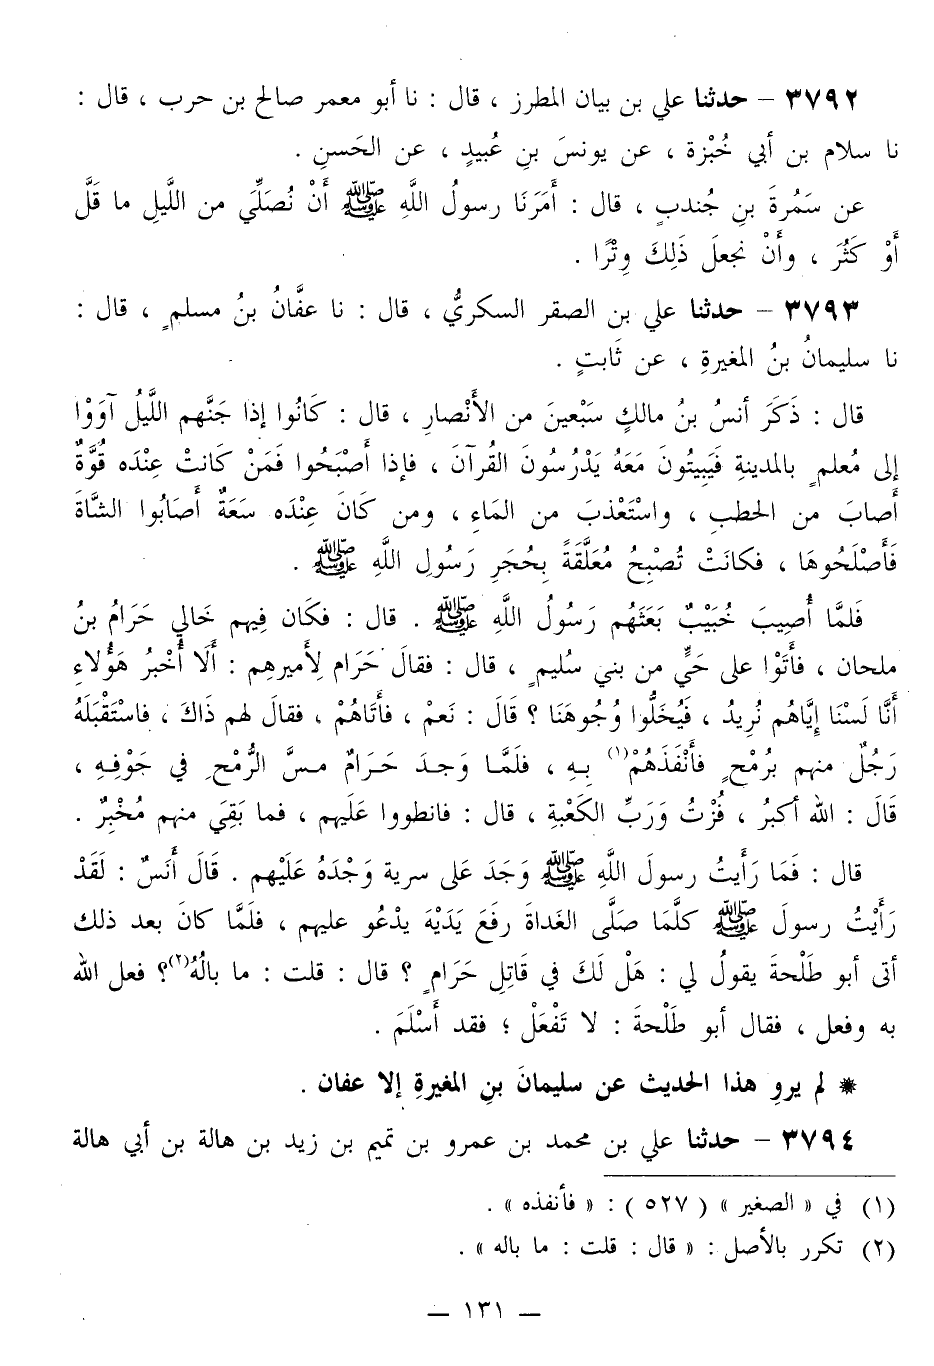 ٣٧٩٢ – حدثنا علي بن بيان المطرز ، قال : نا أبو معمر صالح بن حرب ، قال :
نا سلام بن أبي خُبْزة ، عن يونسَ بنِ عُبيدٍ ، عن الحَسنِ .
عن سَمُرةَ بنِ جُندبٍ ، قال : أَمَرَنَا رسولُ اللَّهِ ﷺ أَنْ نُصَلِّيَ من اللَّيلِ ما قَلَّ
أَوْ كَثُرَ ، وأَنْ نجعلَ ذَلِكَ وِتْرًا .
٣٧٩٣ – حدثنا علي بن الصقر السكريُّ ، قال : نا عفَّانُ بنُ مسلمٍ ، قال :
نا سليمانُ بنُ المغيرةِ ، عن ثَابتٍ .
قال : ذَكَرَ أنسُ بنُ مالكٍ سَبْعينَ من الأَنْصارِ ، قال : كَانُوا إذا جَنَّهم اللَّيلُ آوَوْا
إلى مُعلمٍ بالمدينةِ فَيَبِيتُونَ مَعَهُ يَدْرُسُونَ القُرآنَ ، فإذا أَصْبَحُوا فَمَنْ كَانتْ عِنْدَه قُوَّةٌ
أَصابَ من الحَطبِ ، واسْتَعْذبَ من المَاءِ ، ومن كَانَ عِنْدَه سَعَةٌ أَصَابُوا الشَّاةَ
فَأَصْلَحُوهَا ، فكَانَتْ تُصْبِحُ مُعَلَّقَةً بِحُجَرِ رَسُولِ اللَّهِ ﷺ .
فلمَّا أُصِيبَ خُبَيْبٌ بَعَثَهُم رَسُولُ اللَّهِ ﷺ . قال : فكَان فِيهم خَالي حَرَامُ بنُ
ملحان ، فأَتَوْا على حَيٍّ من بني سُليمٍ ، قال : فقالَ حَرَام لِأَميرهِم : أَلَا أُخْبرُ هَؤُلاءِ
أَنَّا لَسْنَا إِيَّاهُم نُرِيدُ ، فَيُخَلُّوا وُجُوهَنَا ؟ قَالَ : نَعمْ ، فأَتَاهُمْ ، فقالَ لهم ذَاكَ ، فاسْتَقْبَلَهُ
رَجُلٌ منهم بِرُمْحٍ فأَنْفَذَهُمْ(١) بِهِ ، فلَمَّا وَجدَ حَرَامٌ مسَّ الرُّمْحِ في جَوْفِهِ ،
قَالَ : الله أكبرُ ، فُزْتُ وَرَبِّ الكَعْبةِ ، قال : فانطووا عَلَيهم ، فما بَقِيَ منهم مُخْبِرٌ .
قال : فَمَا رَأَيتُ رسولَ اللَّهِ ﷺ وَجَدَ عَلى سرية وَجْدَهُ عَلَيْهم . قَالَ أَنَسٌ : لَقَدْ
رَأَيْتُ رسولَ ﷺ كلَّمَا صَلَّى الغَداةَ رفَعَ يَدَيْهَ يدْعُو عليهم ، فلَمَّا كانَ بعد ذلك
أتى أبو طَلْحةَ يقولُ لي : هَلْ لَكَ في قَاتِلِ حَرَامٍ ؟ قال : قلت : ما بالُهُ(٢)؟ فعل الله
به وفعل ، فقال أبو طَلْحةَ : لا تَفْعَلْ ؛ فقد أَسْلَمَ .
* لم يروِ هذا الحديث عن سليمانَ بنِ المغيرةِ إلا عفان .
٣٧٩٤ – حدثنا علي بن محمد بن عمرو بن تميم بن زيد بن هالة بن أبي هالة
(١) في « الصغير » ( ٥٢٧ ) : « فأنفذه » .
(٢) تكرر بالأصل : « قال : قلت : ما باله » .
— ١٣١ —